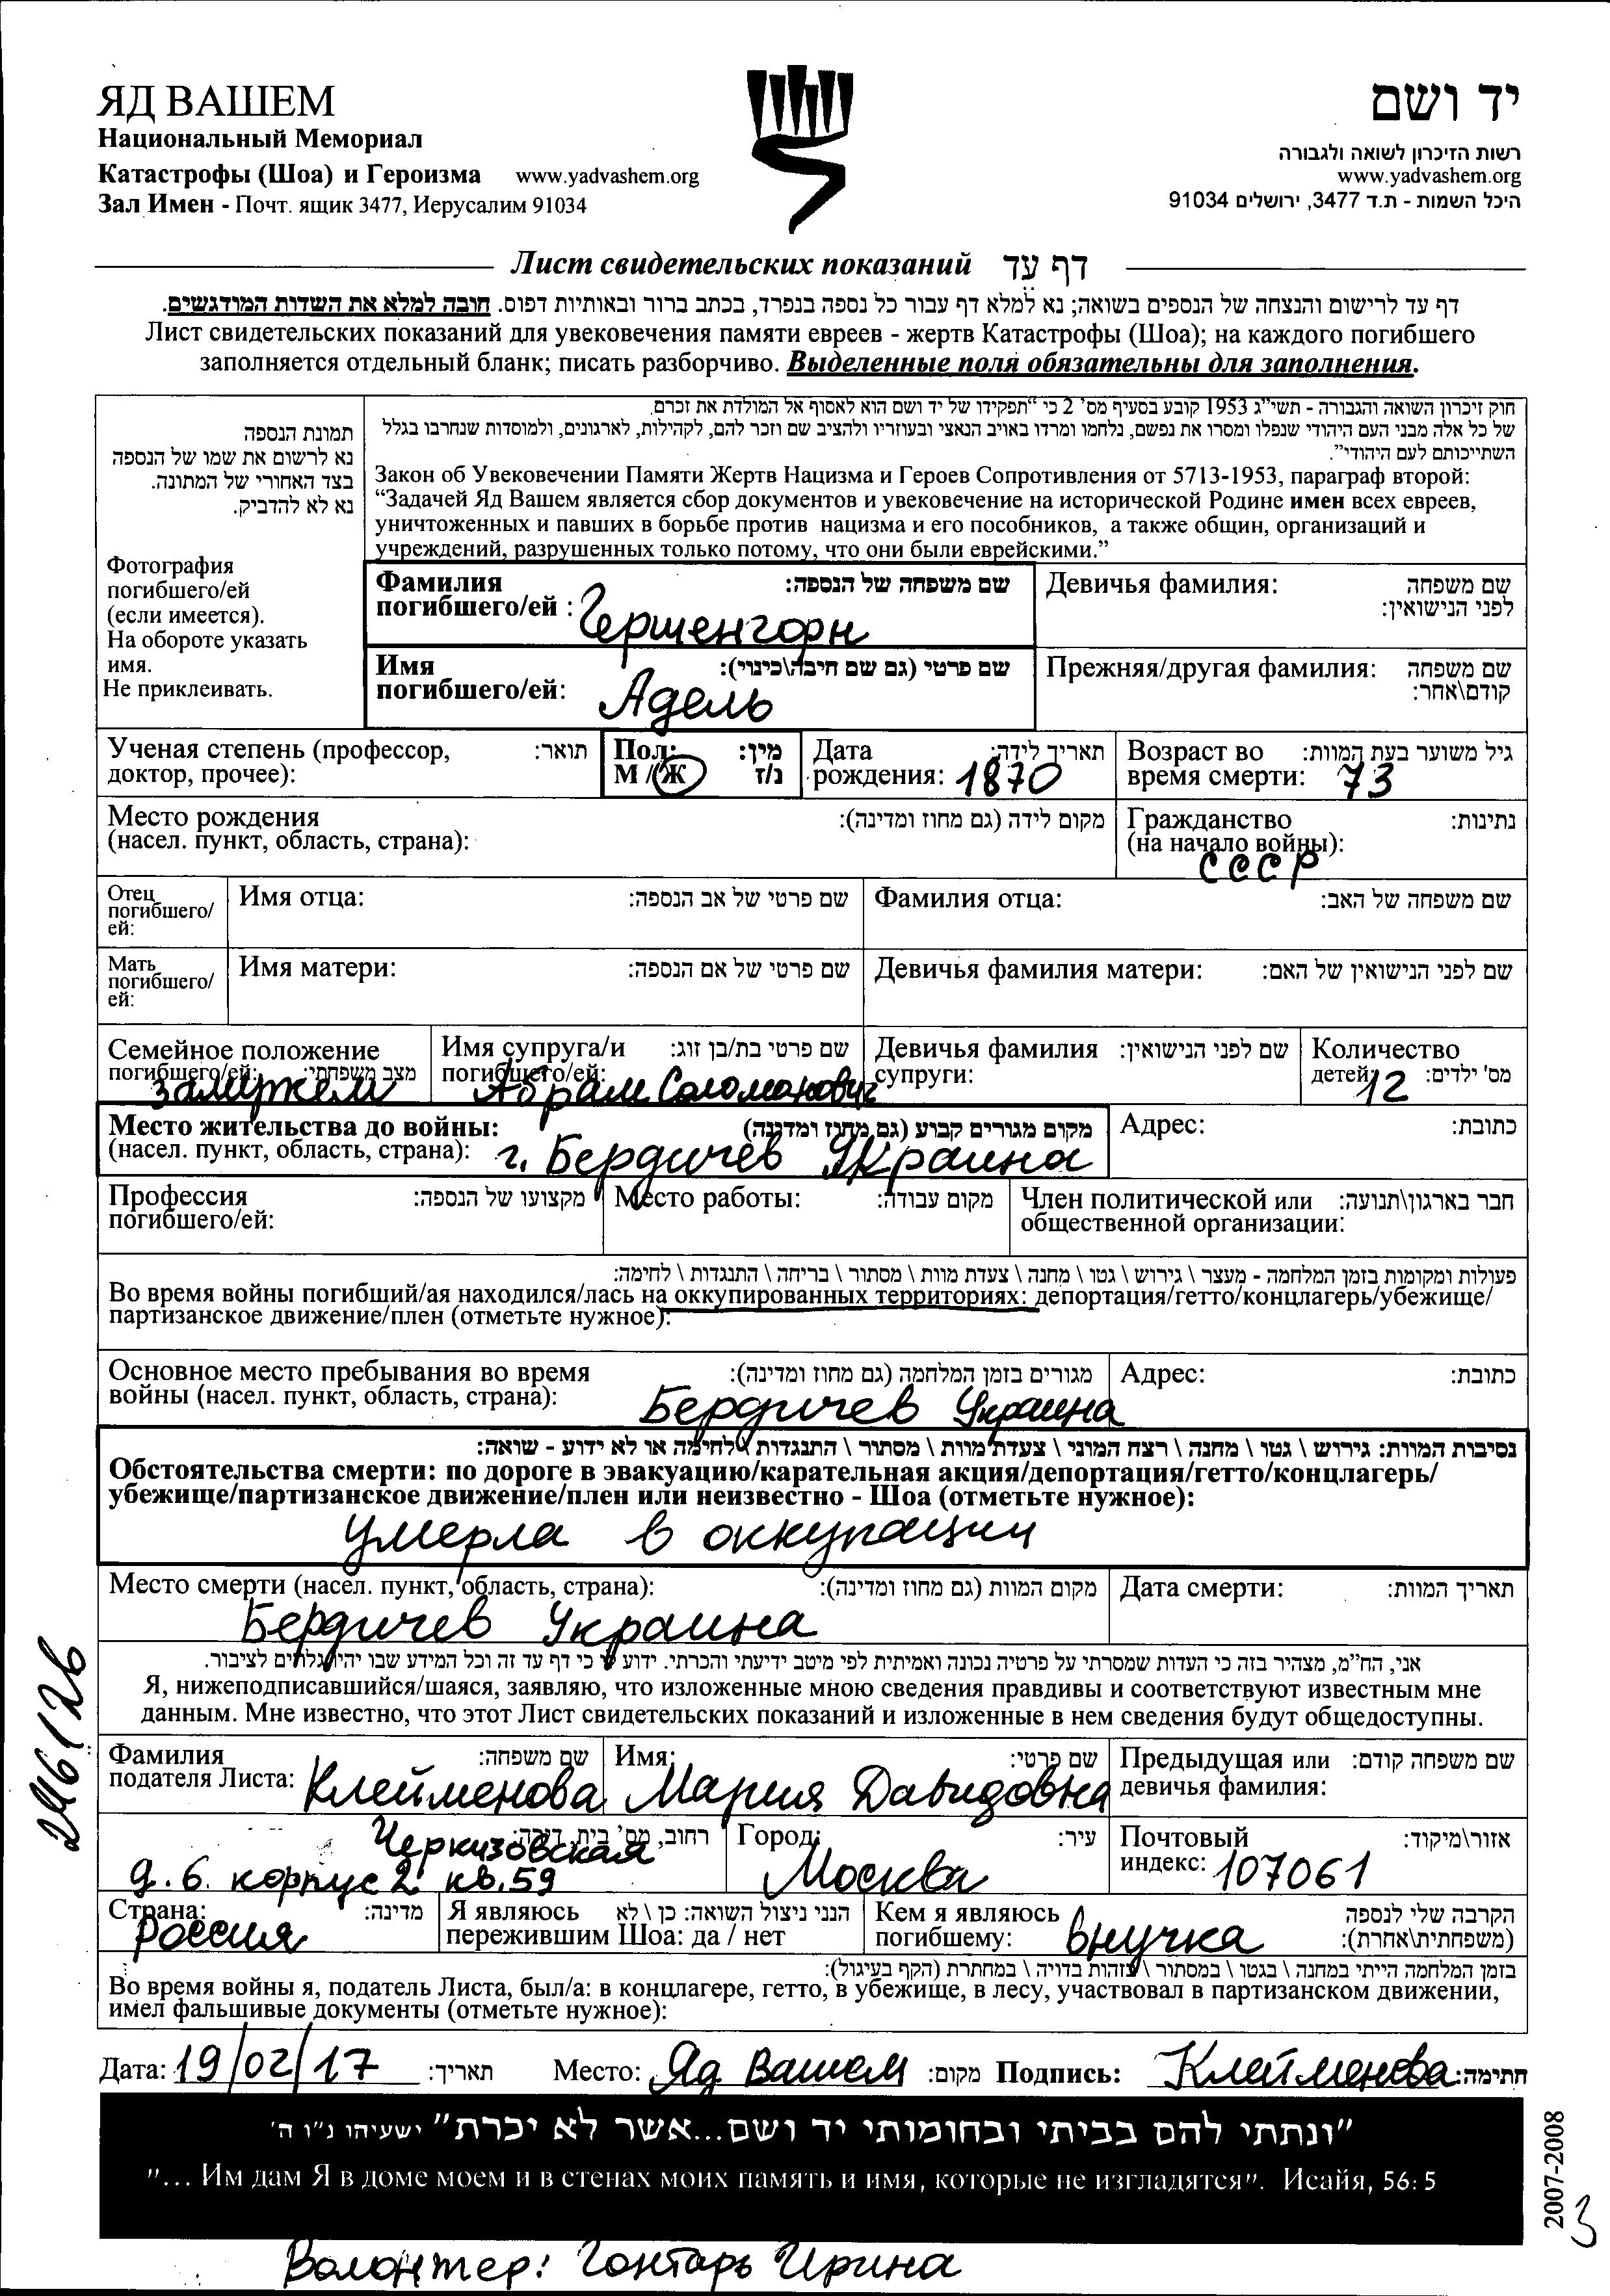 ЯД ВАШЕМ
Национальный Мемориал
Катастрофы (Шоа) и Героизма www.yadvashem.org
Зал Имен - Почт. ящик 3477, Иерусалим 91034
יד ושם
רשות הזיכרון לשואה ולגבורה
www.yadvashem.org
היכל השמות - ת.ד 3477, ירושלים 91034
Лист свидетельских показаний דף עד
דף עד לרישום והנצחה של הנספים בשואה; נא למלא דף עבור כל נספה בנפרד, בכתב ברור ובאותיות דפוס. חובה למלא את השדות המודגשים.
Лист свидетельских показаний для увековечения памяти евреев - жертв Катастрофы (Шоа); на каждого погибшего
заполняется отдельный бланк; писать разборчиво. Выделенные поля обязательны для заполнения.
תמונת הנספה
נא לרשום את שמו של הנספה
בצד האחורי של המתונה.
נא לא להדביק.
Фотография
погибшего/ей
(если имеется).
На обороте указать
имя.
Не приклеивать.
חוק זיכרון השואה והגבורה - תשי"ג 1953 קובע בסעיף מס' 2 כי "תפקידו של יד ושם הוא לאסוף אל המולדת את זכרם
של כל אלה מבני העם היהודי שנפלו ומסרו את נפשם, נלחמו ומרדו באויב הנאצי ובעוזריו ולהציב שם וזכר להם, לקהילות, לארגונים, ולמוסדות שנחרבו בגלל
השתייכותם לעם היהודי".
Закон об Увековечении Памяти Жертв Нацизма и Героев Сопротивления от 5713-1953, параграф второй:
"Задачей Яд Вашем является сбор документов и увековечение на исторической Родине имен всех евреев,
уничтоженных и павших в борьбе против нацизма и его пособников, а также общин, организаций и
учреждений, разрушенных только потому, что они были еврейскими."
Фамилия שם משפחה של הנספה:
погибшего/ей : Гершенгорн
Девичья фамилия: שם משפחה
לפני הנישואין:
Имя שם פרטי (גם שם חיבה\כינוי):
погибшего/ей: Адель
Прежняя/другая фамилия: שם משפחה
קודם\אחר:
Ученая степень (профессор, תואר:
доктор, прочее):
Пол: מין:
М / Ж ז/נ
Дата תאריך לידה:
рождения: 1870
Возраст во גיל משוער בעת המוות:
время смерти: 73
Место рождения מקום לידה (גם מחוז ומדינה):
(насел. пункт, область, страна):
Гражданство נתינות:
(на начало войны):
СССР
Отец
погибшего/
ей:
Имя отца: שם פרטי של אב הנספה:
Фамилия отца: שם משפחה של האב:
Мать
погибшего/
ей:
Имя матери: שם פרטי של אם הנספה:
Девичья фамилия матери: שם לפני הנישואין של האם:
Семейное положение
погибшего/ей: מצב משפחתי:
замужем
Имя супруга/и שם פרטי בת/בן זוג:
погибшего/ей:
Абрам Соломонович
Девичья фамилия שם לפני הנישואין:
супруги:
Количество
детей: מס' ילדים:
12
Место жительства до войны: מקום מגורים קבוע (גם מחוז ומדינה)
(насел. пункт, область, страна): г. Бердичев Украина
Адрес: כתובת:
Профессия מקצועו של הנספה:
погибшего/ей:
Место работы: מקום עבודה:
Член политической или חבר בארגון\תנועה:
общественной организации:
פעולות ומקומות בזמן המלחמה - מעצר \ גירוש \ גטו \ מחנה \ צעדת מוות \ מסתור \ בריחה \ התנגדות \ לחימה:
Во время войны погибший/ая находился/лась на оккупированных территориях: депортация/гетто/концлагерь/убежище/
партизанское движение/плен (отметьте нужное):
Основное место пребывания во время מגורים בזמן המלחמה (גם מחוז ומדינה):
войны (насел. пункт, область, страна):
Бердичев Украина
Адрес: כתובת:
נסיבות המוות: גירוש \ גטו \ מחנה \ רצח המוני \ צעדת מוות \ מסתור \ התנגדות \ לחימה או לא ידוע - שואה:
Обстоятельства смерти: по дороге в эвакуацию/карательная акция/депортация/гетто/концлагерь/
убежище/партизанское движение/плен или неизвестно - Шоа (отметьте нужное):
умерла в оккупации
Место смерти (насел. пункт, область, страна): מקום המוות (גם מחוז ומדינה):
Бердичев Украина
Дата смерти: תאריך המוות:
אני, הח"מ, מצהיר בזה כי העדות שמסרתי על פרטיה נכונה ואמיתית לפי מיטב ידיעתי והכרתי. ידוע לי כי דף עד זה וכל המידע שבו יהיו גלויים לציבור.
Я, нижеподписавшийся/шаяся, заявляю, что изложенные мною сведения правдивы и соответствуют известным мне
данным. Мне известно, что этот Лист свидетельских показаний и изложенные в нем сведения будут общедоступны.
Фамилия שם משפחה:
подателя Листа: Клейменова
Имя: שם פרטי:
Мария Давидовна
Предыдущая или שם משפחה קודם:
девичья фамилия:
רחוב, מס' בית, דירה:
Черкизовская
д. 6. корпус 2 кв. 59
Город: עיר:
Москва
Почтовый אזור\מיקוד:
индекс: 107061
Страна: מדינה:
Россия
Я являюсь הנני ניצול השואה: כן \ לא
пережившим Шоа: да / нет
Кем я являюсь הקרבה שלי לנספה
погибшему: внучка (משפחתית\אחרת):
בזמן המלחמה הייתי במחנה \ בגטו \ במסתור \ בזהות בדויה \ במחתרת (הקף בעיגול):
Во время войны я, податель Листа, был/а: в концлагере, гетто, в убежище, в лесу, участвовал в партизанском движении,
имел фальшивые документы (отметьте нужное):
Дата: 19/02/17 תאריך: Место: Яд Вашем מקום: Подпись: Клейменова חתימה:
"ונתתי להם בביתי ובחומותי יד ושם...אשר לא יכרת" ישעיהו נ"ו ה'
"... Им дам Я в доме моем и в стенах моих память и имя, которые не изгладятся". Исайя, 56: 5
Волонтер: Гонтарь Ирина
246126
2007-2008
3